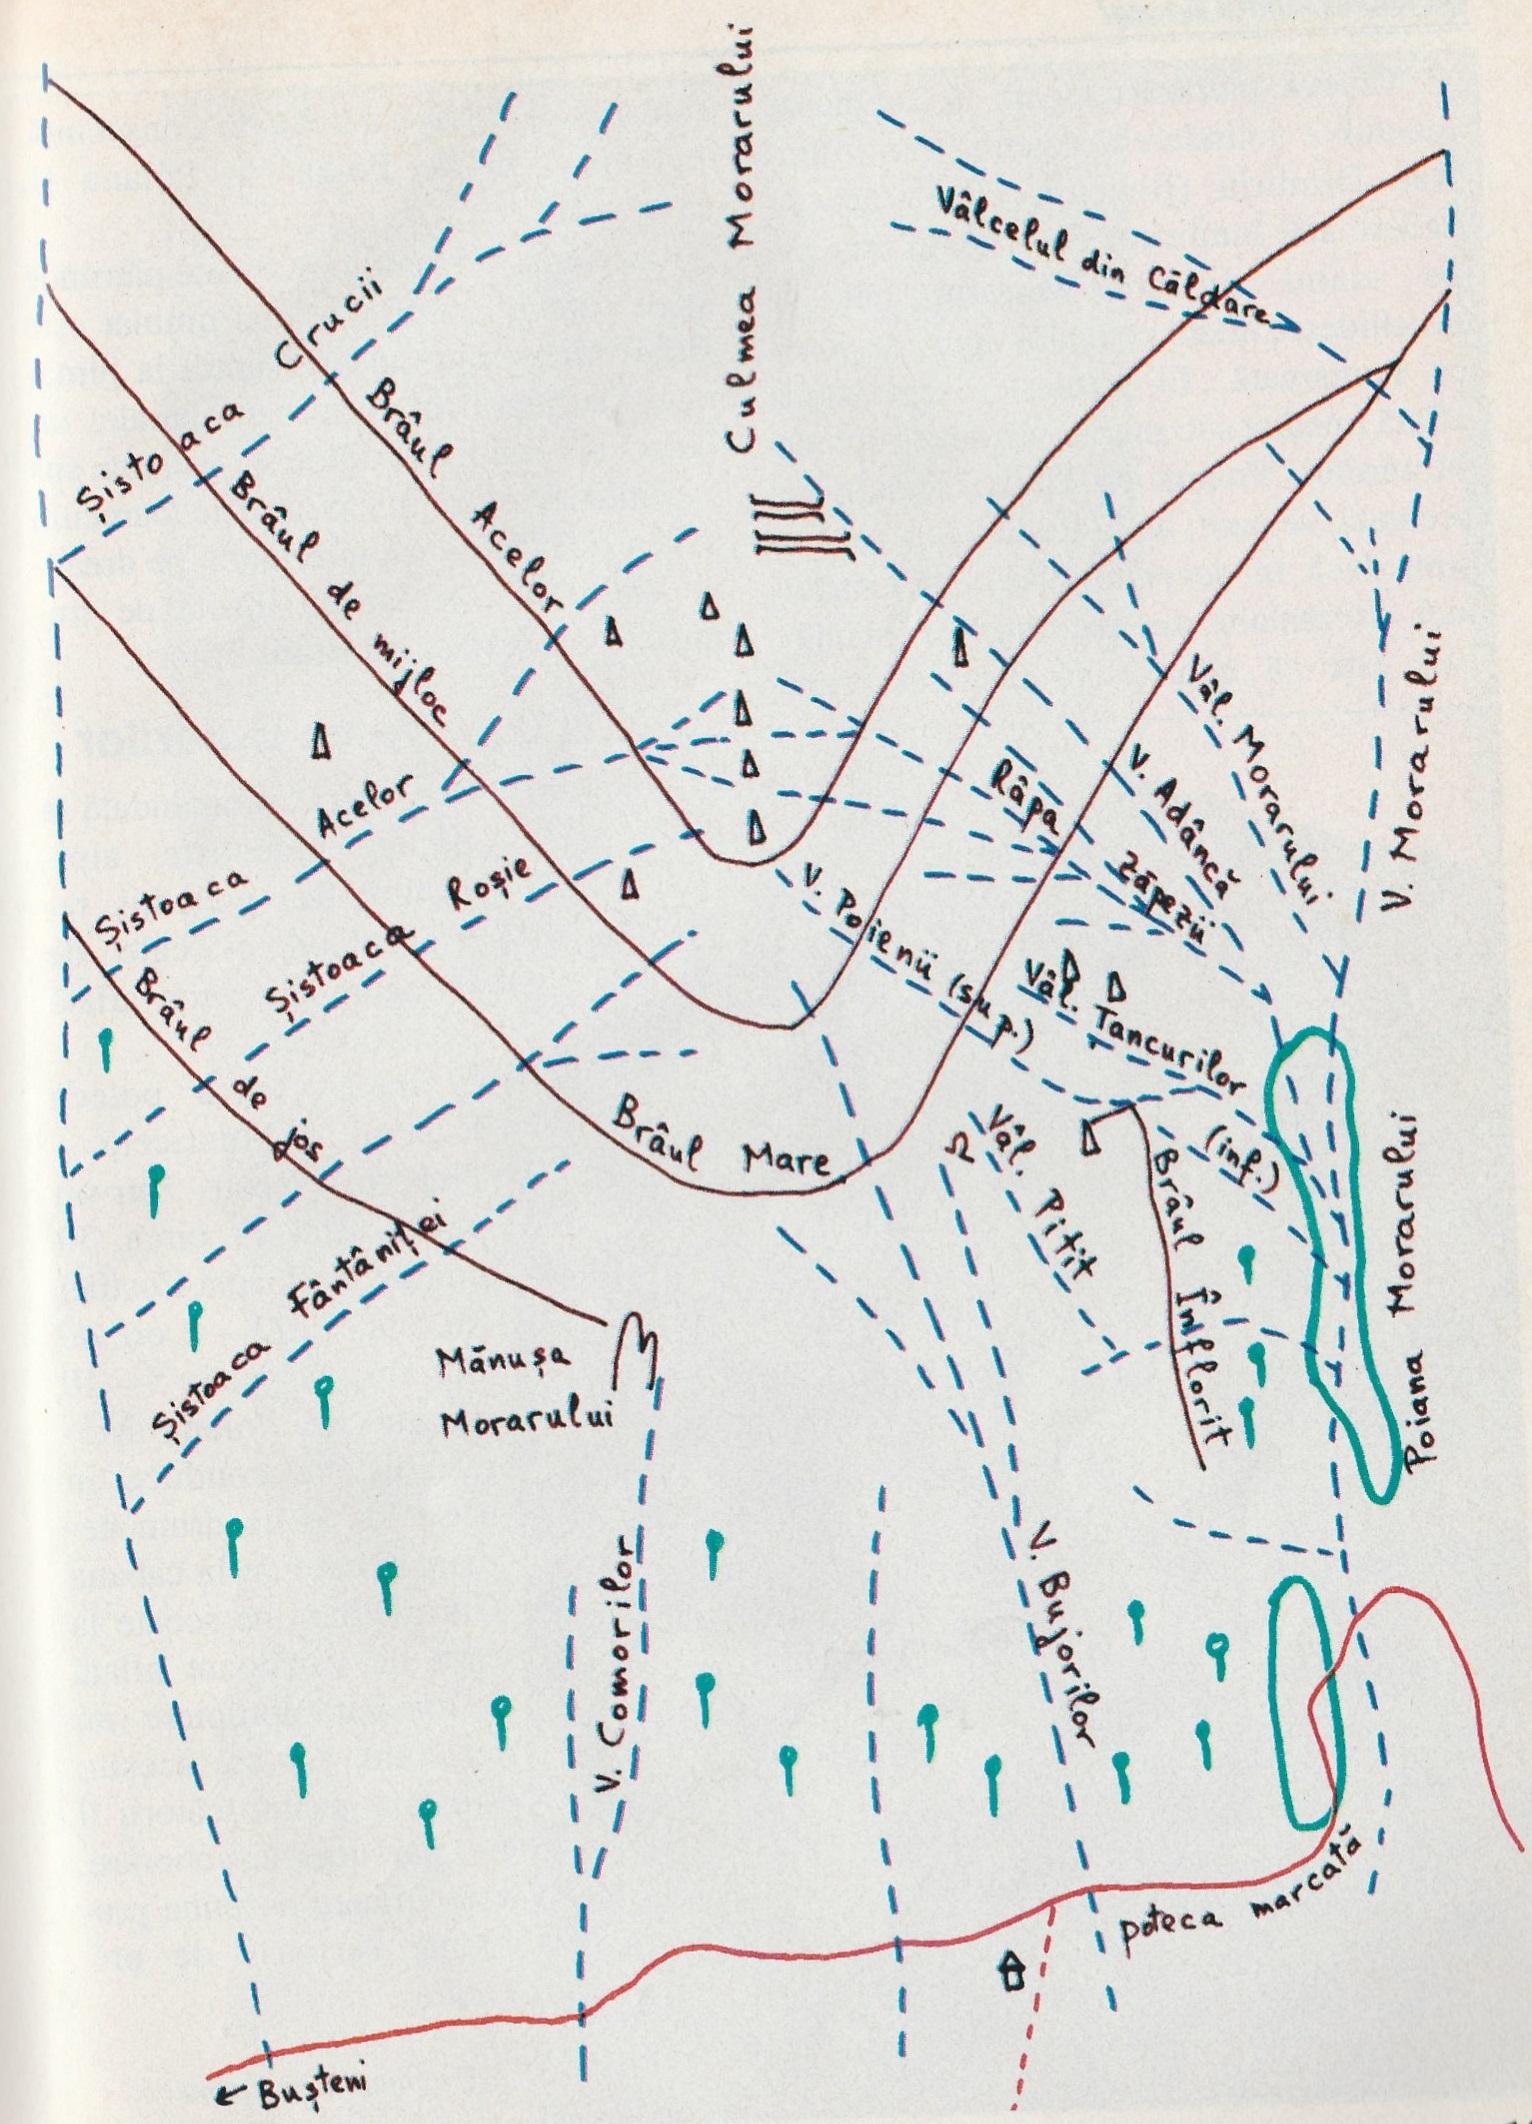 Culmea Morarului
Vâlcelul din Căldare
Șistoaca Crucii
Brâul Acelor
Brâul de mijloc
Șistoaca Acelor
Șistoaca Roșie
Brâul de jos
Brâul Mare
Șistoaca Fântâniței
Mănușa
Morarului
V. Poienii (sup.)
(inf.)
Râpa Zăpezii
V. Adâncă
Vâl. Morarului
V. Morarului
Vâl. Tancurilor
Vâl. Pitit
Brâul Înflorit
Poiana Morarului
V. Comorilor
V. Bujorilor
poteca marcată
← Bușteni